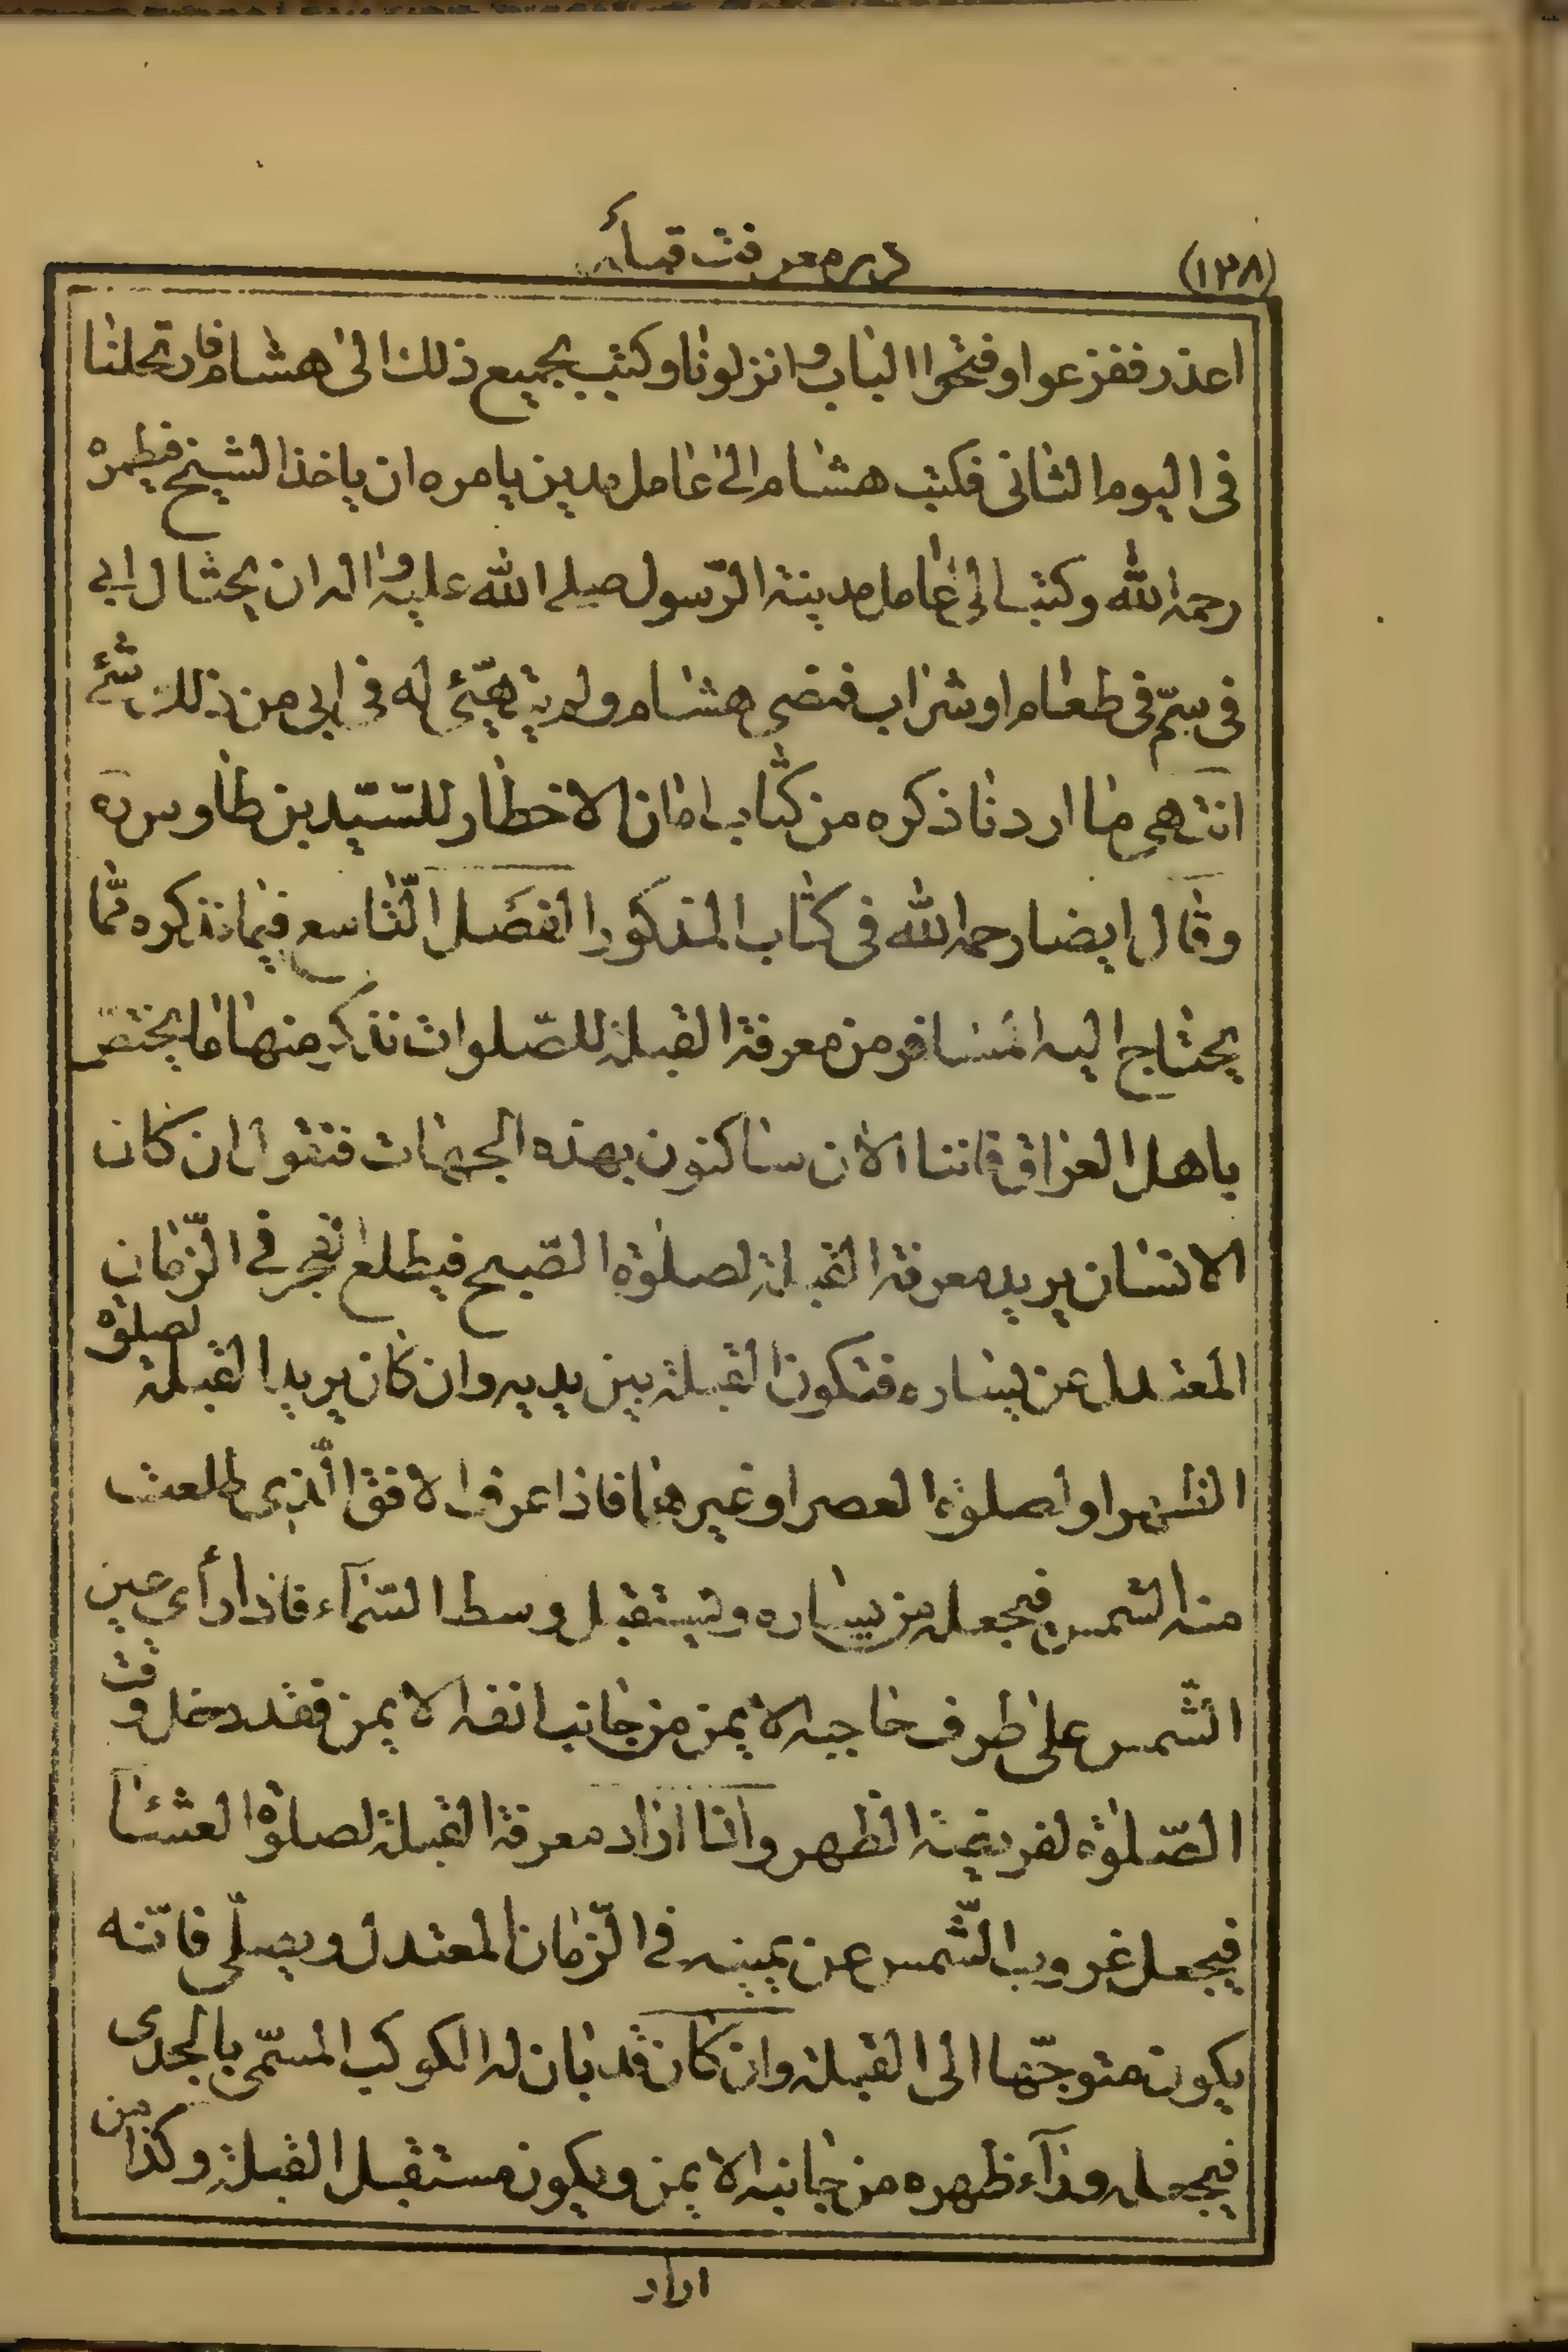 (۱۳۸)
در معرفت قبله
اعذر ففزعوا وفتحوا الباب وانزلونا وكتب بجميع ذلك الى هشام فارتحلنا
فى اليوم الثانى فكتب هشام الى عامل مدين يامره ان ياخذ الشيخ فيطمره
رحمه الله وكتب الى عامل مدينة الرّسول صلى الله عليه واله ان يحتال ابى
فى سمّ فى طعام او شراب فمضى هشام ولم يتهيّئ له فى ابى من ذلك شئ
انتهى ما اردنا ذكره من كتاب امان الاخطار للسّيّد بن طاوس ره
وقال ايضا رحمه الله فى كتاب المذكور الفصل التّاسع فيما نذكره ممّا
يحتاج اليه المسافر من معرفة القبلة للصّلوات نذكر منها ما يختصّ
باهل العراق فاننا الان ساكنون بهذه الجهات فنقول ان كان
الانسان يريد معرفة القبلة لصلوة الصّبح فيطلع الفجر فى الزّمان
المعتدل عن يساره فتكون القبلة بين يديه وان كان يريد القبلة لصلوة
الظهر او لصلوة العصر او غيرهما فاذا عرف الافق الّذى طلعت
منه الشمس فيجعله من يساره ويستقبل وسط السّمآء فاذا رأى عين
الشّمس على طرف حاجبه الايمن من جانب انفه الايمن فقد دخل وقت
الصّلوة لفريضة الظهر وانا اراد معرفة القبلة لصلوة العشا
فيجعل غروب الشّمس عن يمينه فى الزّمان المعتدل ويصلّى فانّه
يكون متوجّها الى القبلة وان كان قد بان له الكوكب المسمّى بالجدى
فيجعله ورآء ظهره من جانبه الايمن ويكون مستقبل القبلة وكذا من
اراد